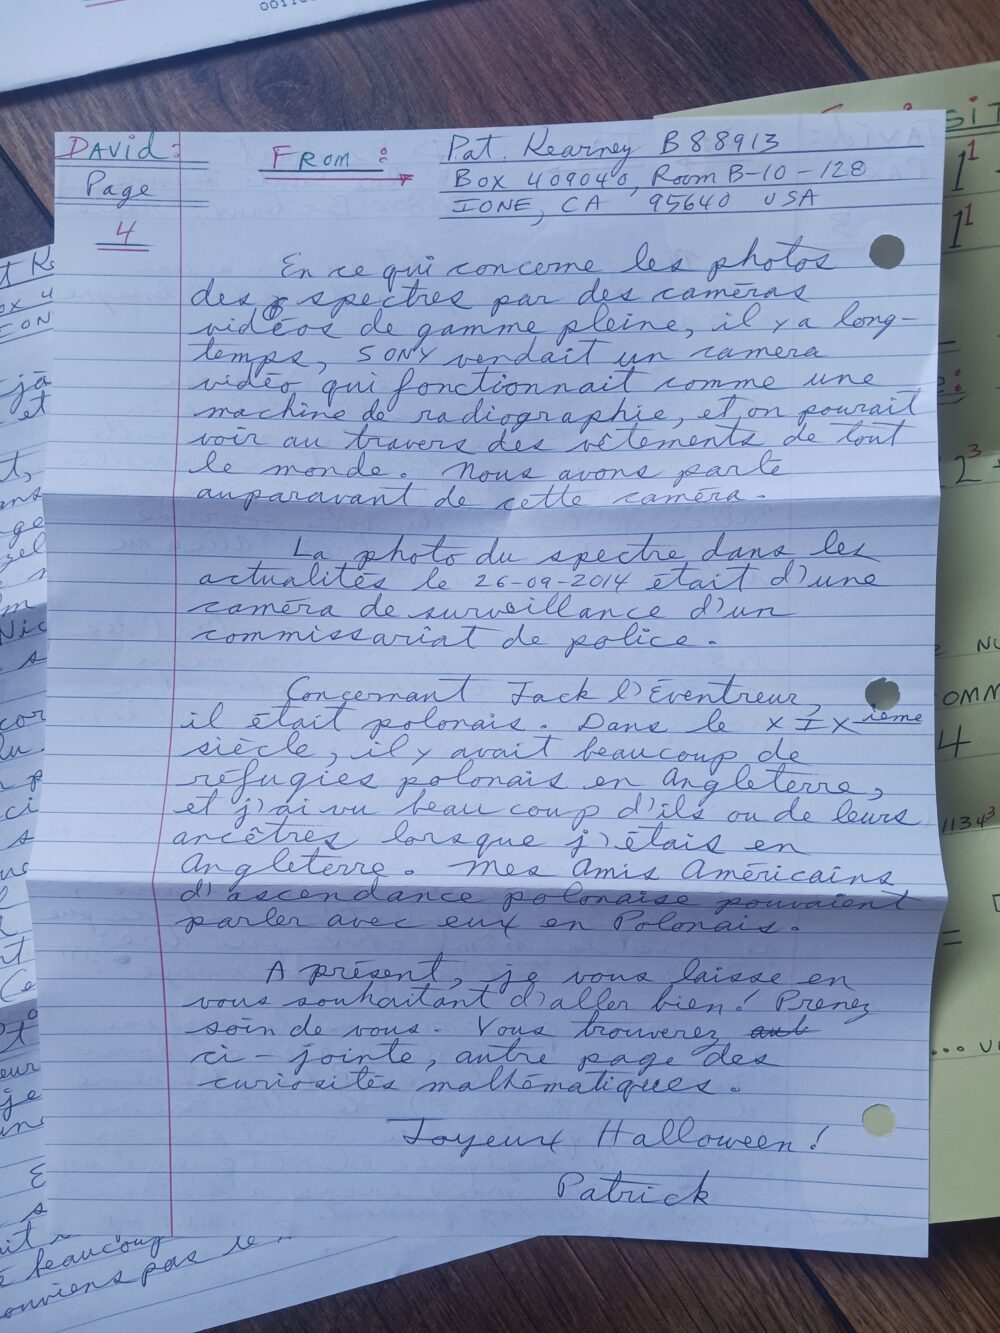 DAVID:
Page
4
FROM:
Pat. Kearney B88913
BOX 409040, Room B-10-128
IONE, CA 95640 USA
En ce qui concerne les photos
des spectres par des caméras
vidéos de gamme pleine, il y a long-
temps, SONY vendait un camera
vidéo qui fonctionnait comme une
machine de radiographie, et on pourait
voir au travers des vêtements de tout
le monde. Nous avons parlé
auparavant de cette caméra.
La photo du spectre dans les
actualités le 26-09-2014 était d'une
caméra de surveillance d'un
commissariat de police.
Concernant Jack l'Éventreur,
il était polonais. Dans le XIXième
siècle, il y avait beaucoup de
réfugies polonais en Angleterre,
et j'ai vu beau coup d'ils ou de leurs
ancêtres lorsque j'étais en
Angleterre. Mes Amis Américains
d'ascendance polonaise pouvaient
parler avec eux en Polonais.
A présent, je vous laisse en
vous souhaitant d'aller bien! Prenez
soin de vous. Vous trouverez
ci-jointe, autre page des
curiosités mathématiques.
Joyeux Halloween!
Patrick
beaucoup
onviens pas